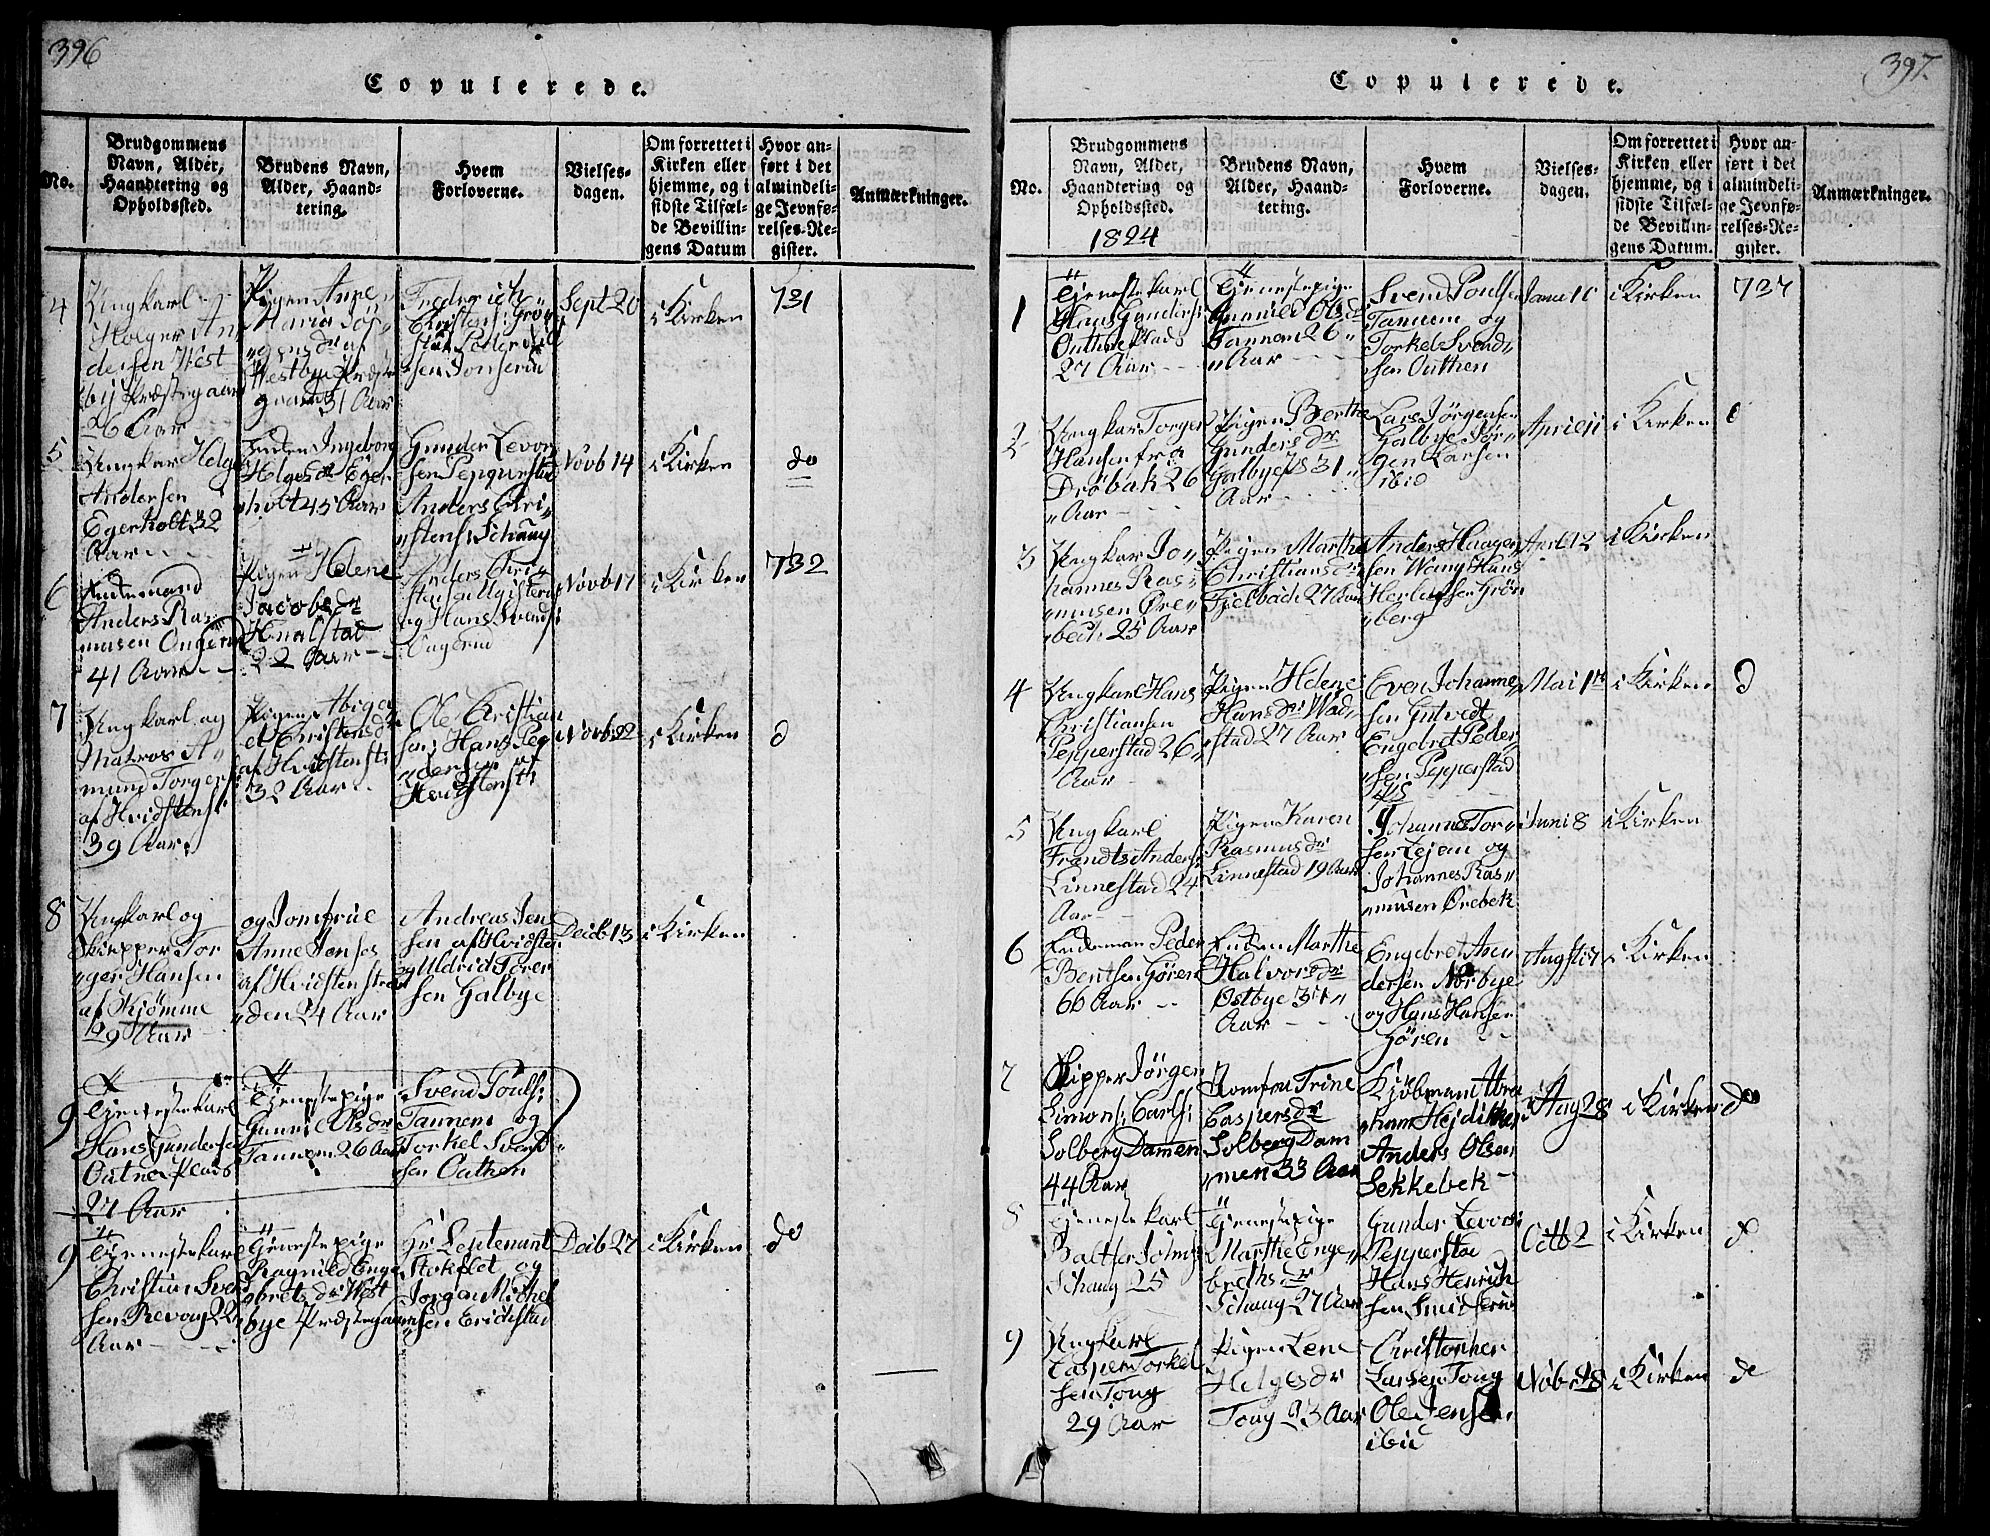 396
Copulerede.
No.
Brudgommens
Navn, Alder,
Haandtering og
Opholdssted.
Brudens Navn,
Alder, Haand-
tering.
Hvem
Forloverne.
Vielses-
dagen.
Om forrettet i
Kirken eller
hjemme, og i
sidste Tilfæl-
de Bevillin-
gens Datum
Hvor an-
ført i det
almindeli-
ge Jevnfø-
relses-Re-
gister.
Anmærkninger.
4
Ungkarl
Holger An
dersen West
by Præstegaard
26 Aar
Pigen Anne
Maria Jør
gensdr af
Westbye Præste
gaard 31 Aar
Frederich
Christens: Grø
stad Peder
sen
Sept 20
i Kirken
731
5
Ungkar Helge
Andersen
Egerholt 32
Aar
Enken Ingeborg
Helgesdr Eger
holt 45 Aar
Gunder Levor
sen Pepperstad
Anders Chri
stens: Schaug
Novb 14
i Kirken
do
6
Enkemand
Anders Ras
musen Ongerud
41 Aar
Pigen Helene
Jacobsdr
Knalstad
22 Aar
Anders Chri
stensen
og Hans Svends:
Ongerud
Novb 17
i Kirken
732
7
Ungkarl og
Matros A
mund Torgers:
af Hvidstenst:
39 Aar
Pigen Abiga
el Christensdr
af Hvidstenst:
32 Aar
Ole Christian
sen Hans Pe
dersen af
Hvidstenst:
Novb 22
i Kirken
d
8
Ungkarl og
Skipper Tor
ger Hansen
af Kjømme
29 Aar
og Jomfrue
Anne Jenses
af Hvidstenstran
den 24 Aar
Andreas Jen
sen af Hvidsten
og Uldrid Torer
sen Galbye
Decb 13
i Kirken
9
Tjenestekarl
Hans Gundersen
Outne Plads
27 Aar
Tjenestepige
Gunnil Olsdr
Tannem 26 Aar
Svend Pouls:
Tannem og
Torkel Svend
sen Outhen
9
Tjenestekarl
Christian Svend
sen Revoug 22
Aar
Tjenestepige
Ragnild Enge
bretsdr West
bye Præstegaard
Hr Leutenant
Stokflet og
Jørgen Michel
sen Erichstad
Decb 27
i Kirken
do
397.
Copulerede.
No.
Brudgommens
Navn, Alder,
Haandtering og
Opholdssted.
1824
Brudens Navn,
Alder, Haand-
tering.
Hvem
Forloverne.
Vielses-
dagen.
Om forrettet i
Kirken eller
hjemme, og i
sidste Tilfæl-
de Bevillin-
gens Datum.
Hvor an-
ført i det
almindeli-
ge Jevnfø-
relses-Re-
gister.
Anmærkninger.
1
Tjenestekarl
Hans Gunders:
Outhne Plads
27 Aar
Tjenestepige
Gunnild Olsdr
Tannem 26
Aar
Svend Poulsen
Tannem og
Torkel Svend
sen Outhen
i Kirken
737
2
Ungkar Torger
Hansen fra
Drøbak 26
Aar
Pigen Berthe
Gundersdr
Galbye 31
Aar
Lars Jørgensen
Galbye Jør
gen Larsen
ibid
April 11
i Kirken
3
Ungkar Jo
hannes Ras
musen Øre
bek 25 Aar
Pigen Marthe
Christiansdr
Fjelbach 27 Aar
Anders Haagen
sen Wang Hans
Herlufsen Grøn
berg
Aprl 12
i Kirken
4
Ungkarl Hans
Christiansen
Pepperstad 26
Aar
Pigen Helene
Hansdr Wad
stad 27 Aar
Even Johanne
sen Gutvedt
Engebret Peder
sen Pepperstad
Mai
i Kirken
d
5
Ungkarl
Frandts Anders:
Linnestad 24
Aar
Pigen Karen
Rasmusdr
Linnestad 19 Aar
Johannes Tor
sen Lejen og
Johannes Ras
musen Ørebek
Juni 8
i Kirken
6
Enkeman Peder
Bentsen Gøren
66 Aar
Enken Marthe
Halvorsdr
Østbye
Aar
Engebret An
dersen Norbye
og Hans Hansen
Gøren
i Kirken
7
Skipper Jørgen
Simons: Carls:
Solberg Dammen
44 Aar
Jomfru Trine
Caspersdr
Solberg Dam
men 33 Aar
Kjøbmand Abra
ham
Anders Olsen
Sekkebek
Aug 28
i Kirken
do
8
Tjenestekarl
Baltser
Schaug 25
Tjenestepige
Marthe Enge
brethsdr
Schaug 27 Aar
Gunder Levors:
Pepperstad
Hans Henrich
sen Smidserud
Octb 2
i Kirken
d
9
Ungkarl
Casper Torkel
sen Toug
29 Aar
Pigen Lene
Helgesdr
Toug 23 Aar
Christopher
Larsen Toug
Ole Jensen
ibid
Novbr 28
i Kirken
do